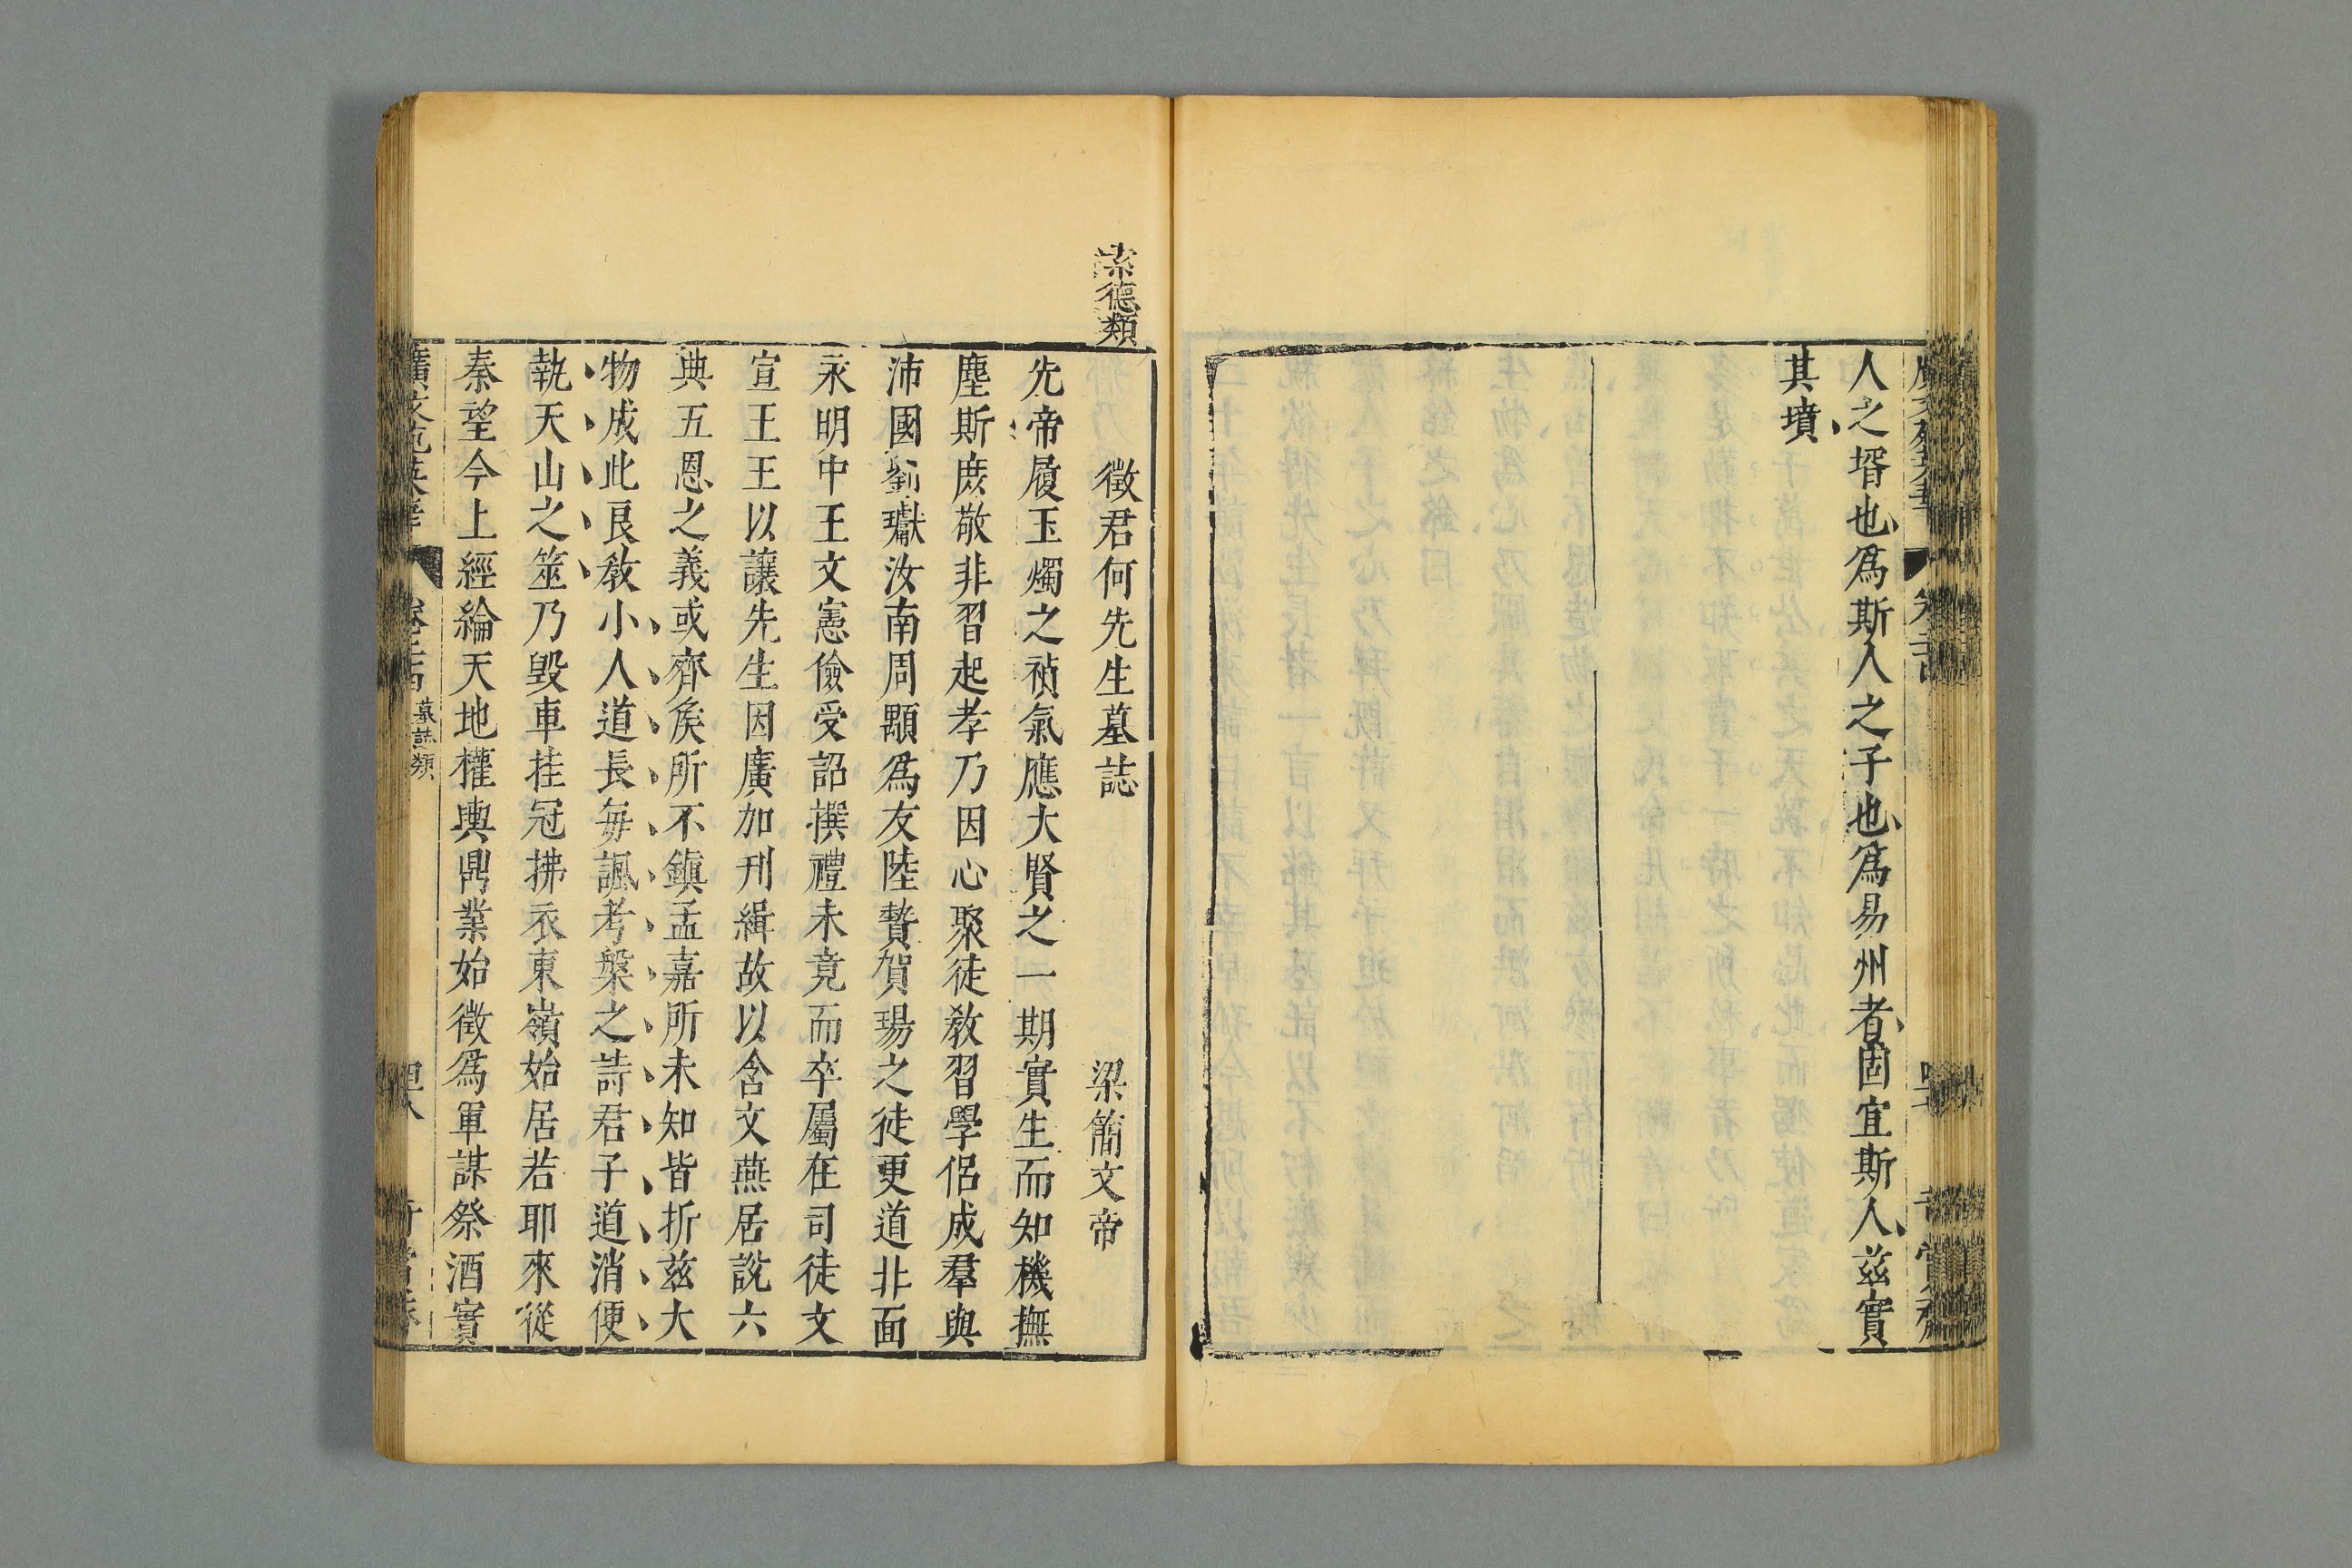 人之壻也爲斯人之子也爲易州者固宜斯人兹實
其墳
素德類
徵君何先生墓誌 梁簡文帝
先帝履玉燭之禎氣應大賢之一期實生而知機撫
塵斯庶敬非習起孝乃因心聚徒教習學侶成羣與
沛國劉瓛汝南周顒爲友陸贄賀瑒之徒更道非面
永明中王文憲儉受詔撰禮未竟而卒屬在司徒文
宣王王以讓先生因廣加刊緝故以含文燕居說六
典五恩之義或齊矦所不鎮孟嘉所未知皆折兹大
物成此良教小人道長每諷考槃之詩君子道消便
執天山之筮乃毀車挂冠拂衣東嶺始居若耶來從
秦望今上經綸天地權輿鼎業始徵爲軍謀祭酒實
廣文苑英華
墓誌類